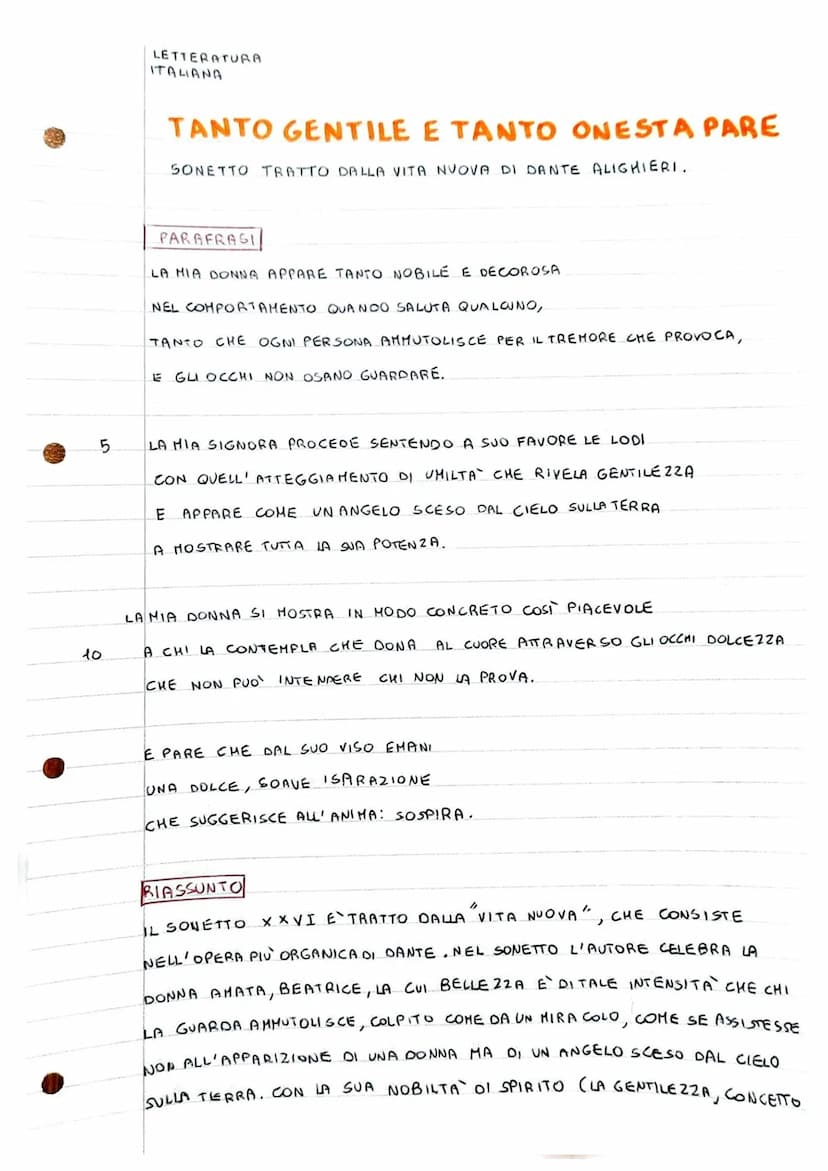 LETTERATURA
ITALIANA
TANTO GENTILE E TANTO ONESTA PARE
SONETTO TRATTO DALLA VITA NUOVA DI DANTE ALIGHIERI.
PARAFRASI
LA MIA DONNA APPARE TANTO NOBILE E DECOROSA
NEL COMPORTAMENTO QUANDO SALUTA QUALCUNO,
TANTO CHE OGNI PERSONA AMMUTOLISCE PER IL TREMORE CHE PROVOCA,
E GLI OCCHI NON OSANO GUARDARE.
5 LA MIA SIGNORA PROCEDE SENTENDO A SUO FAVORE LE LODI
CON QUELL'ATTEGGIAMENTO DI UMILTÀ CHE RIVELA GENTILEZZA
E APPARE COME UN ANGELO SCESO DAL CIELO SULLA TERRA
A MOSTRARE TUTTA LA SUA POTENZA.
LA MIA DONNA SI MOSTRA IN MODO CONCRETO COSÌ PIACEVOLE
10 A CHI LA CONTEMPLA CHE DONA AL CUORE ATTRAVERSO GLI OCCHI DOLCEZZA
CHE NON PUÒ INTENDERE CHI NON LA PROVA.
E PARE CHE DAL SUO VISO EMANI
UNA DOLCE, SOAVE ISPARAZIONE
CHE SUGGERISCE ALL'ANIMA: SOSPIRA.
RIASSUNTO
IL SONETTO XXVI È TRATTO DALLA "VITA NUOVA", CHE CONSISTE
NELL'OPERA PIÙ ORGANICA DI DANTE. NEL SONETTO L'AUTORE CELEBRA LA
DONNA AMATA, BEATRICE, LA CUI BELLEZZA È DI TALE INTENSITÀ CHE CHI
LA GUARDA AMMUTOLISCE, COLPITO COME DA UN MIRACOLO, COME SE ASSISTESSE
NON ALL'APPARIZIONE DI UNA DONNA MA DI UN ANGELO SCESO DAL CIELO
SULLA TERRA. CON LA SUA NOBILTÀ DI SPIRITO (LA GENTILEZZA, CONCETTO